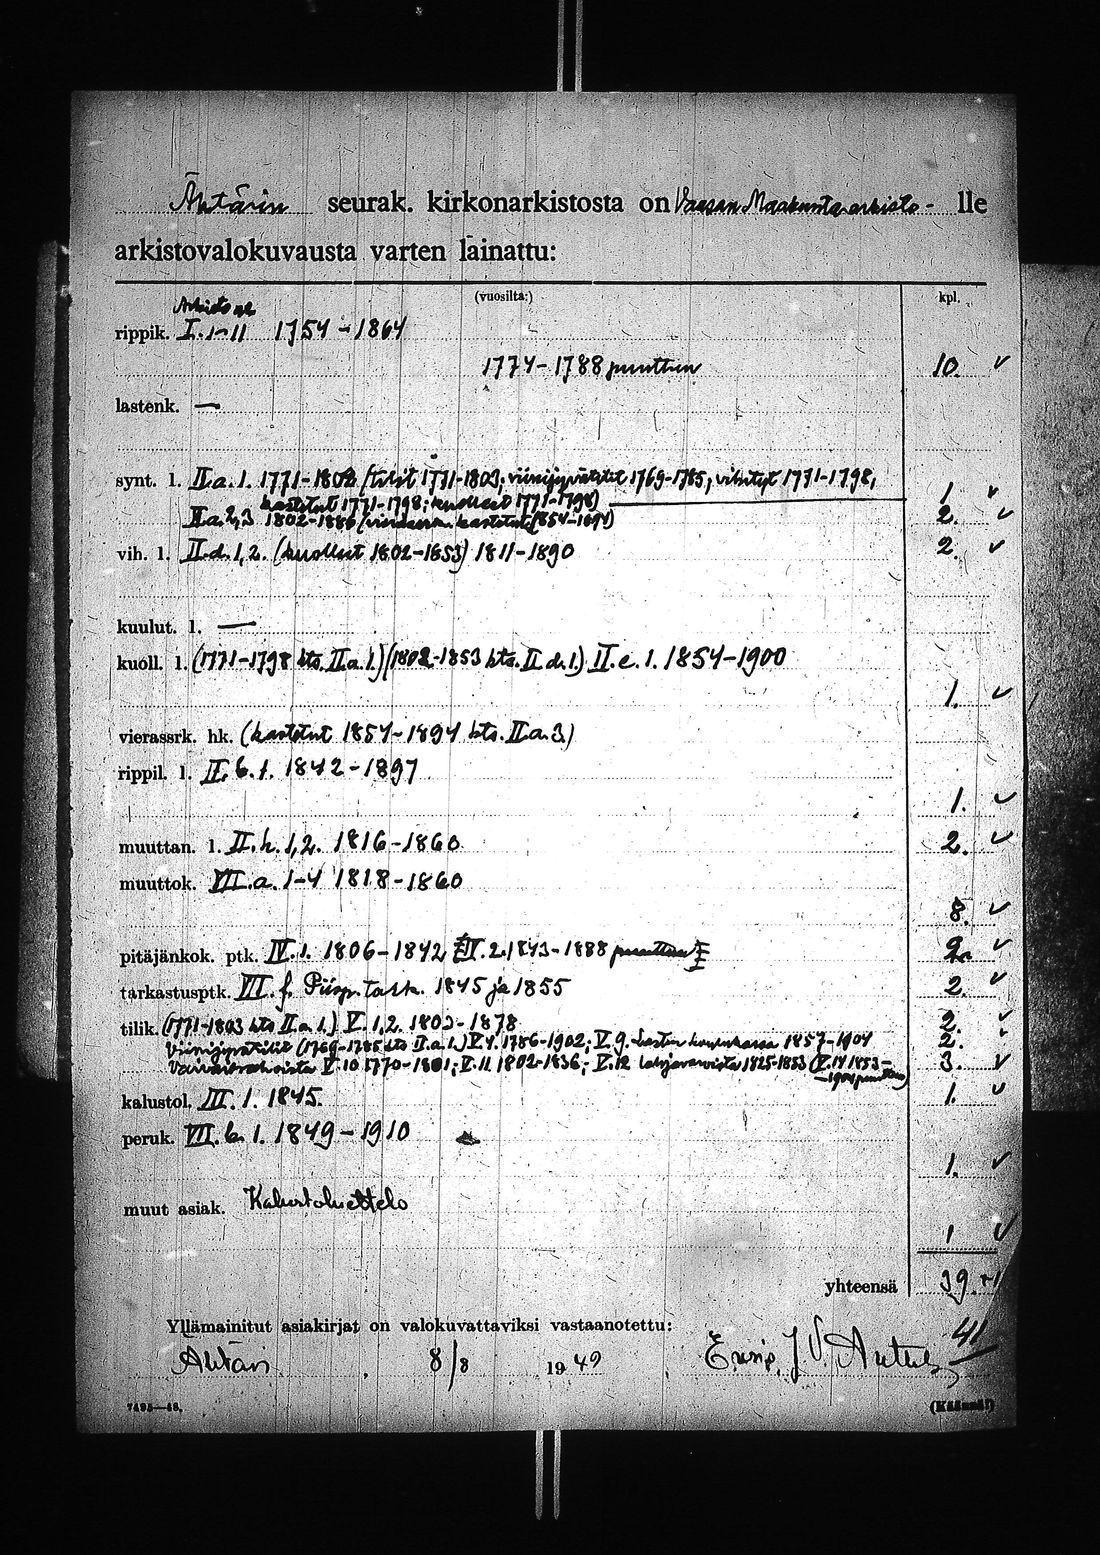 Ähtärin seurak. kirkonarkistosta on Vaasan Maakunta-arkisto- lle
arkistovalokuvausta varten lainattu:
(vuosilta:) kpl.
Arkisto no
rippik. I.1-11 1754-1864
1774-1788 puuttuu 10.
lastenk. —
synt. l. II.a.1. 1771-1802 (tilit 1771-1803; viinijyvätilit 1769-1785; vihityt 1771-1798,
kastetut 1771-1798; kuolleet 1771-1798) 1
II.a.2,3 1802-1886 (vierassrk. kastetut 1854-1894) 2.
vih. l. II.d.1,2. (kuolleet 1802-1853) 1811-1890 2.
kuulut. l. —
kuoll. l. (1771-1798 kts. II.a.1.) (1802-1853 kts. II.d.1.) II.e.1. 1854-1900
1.
vierassrk. hk. (kastetut 1854-1894 kts. II.a.3)
rippil. l. II.b.1. 1842-1897
1.
muuttan. l. II.h.1,2. 1816-1860 2.
muuttok. VII.a.1-4 1818-1860
8.
pitäjänkok. ptk. IV.1. 1806-1842 IV.2. 1843-1888 2.
tarkastusptk. VI.f. Piisp. tark. 1845 ja 1855 2.
tilik. (1771-1803 kts II.a.1.) V.1,2. 1803-1878 2.
Viinijyvätilit (1769-1785 kts II.a.1.) V.4. 1786-1902, V.9. Lasten koulukassa 1857-1904 2.
Vaivaisrahoista V.10 1770-1801; V.11 1802-1836; V.12 1825-1853 (V.14 1853- 3.
-1904 puuttuu)
kalustol. III.1. 1845. 1.
peruk. VII.b.1. 1849-1910
1.
muut asiak. Kalustoluettelo
1
yhteensä 39.+1
41
Yllämainitut asiakirjat on valokuvattaviksi vastaanotettu:
Ähtäri 8/8 1949 J. V.
7495—48. (Käännä!)